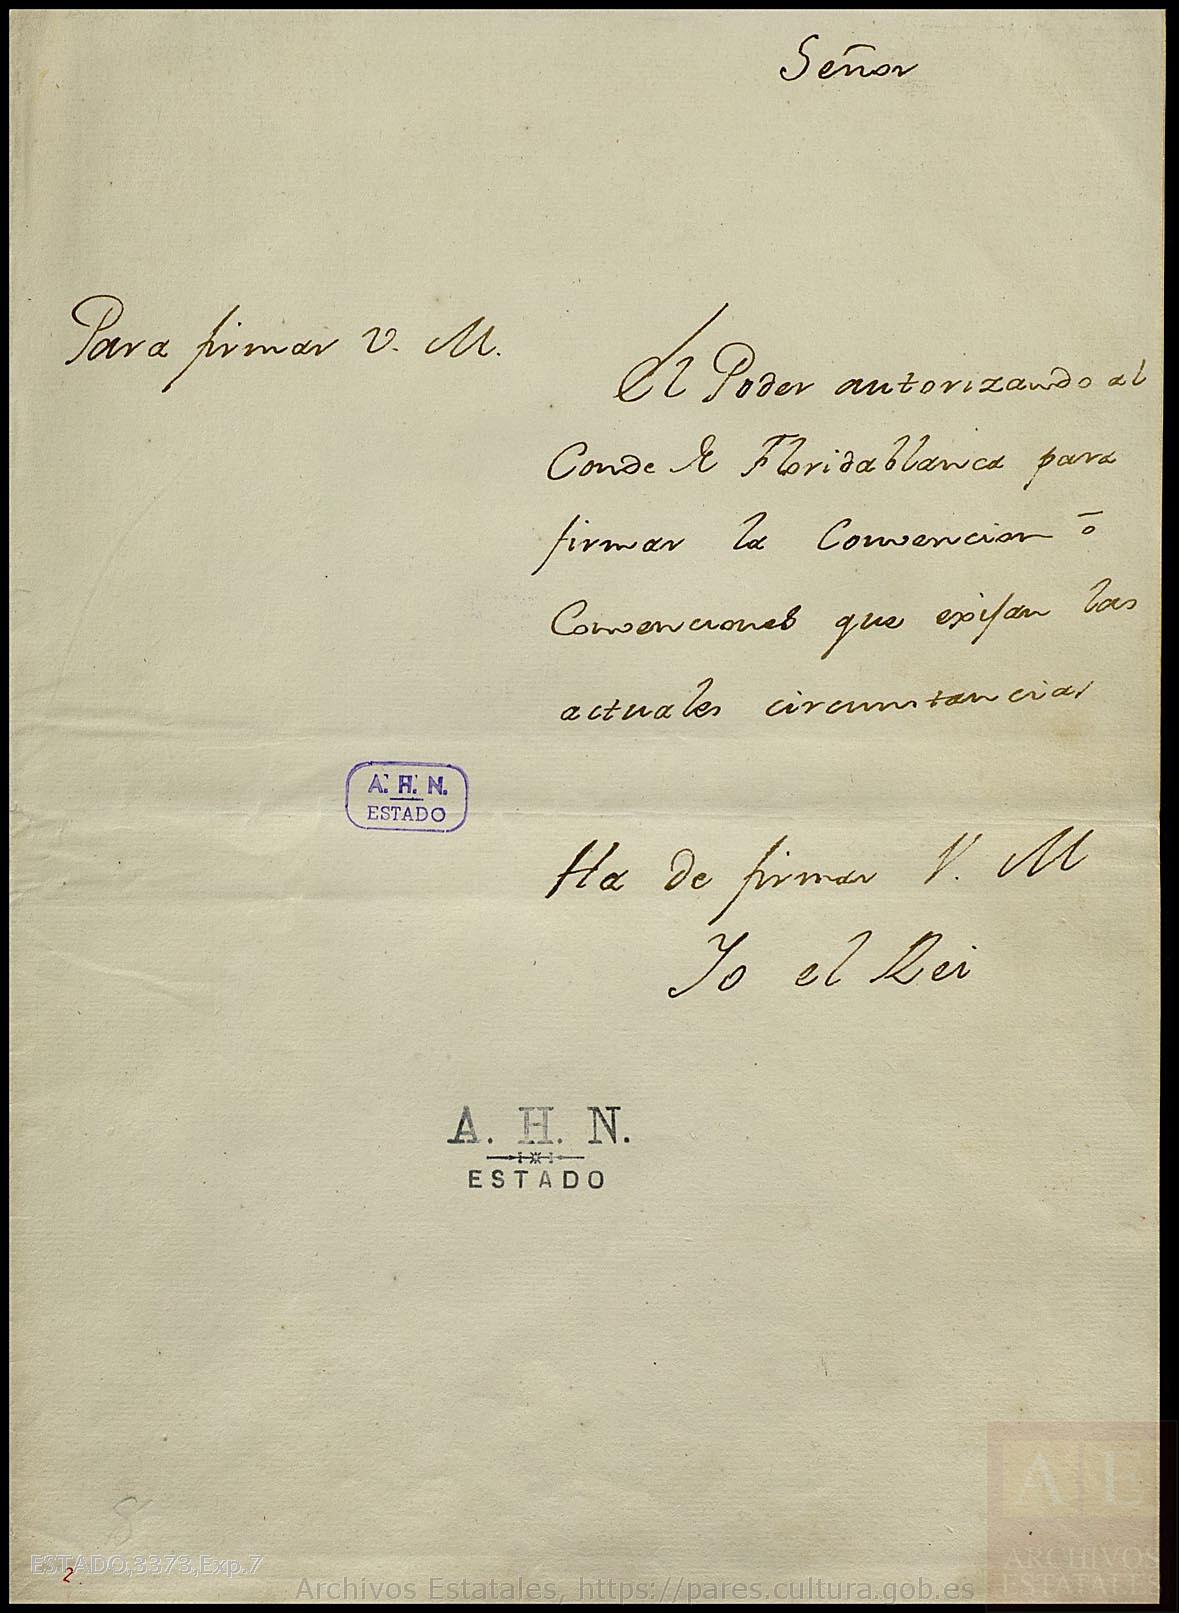 Señor
Para firmar V. M.
El Poder autorizando al
Conde de Floridablanca para
firmar la Convencion ō
Convenciones que exijan las
actuales circunstancias
A. H. N.
ESTADO
Ha de firmar V. M
Yo el Rei
A. H. N.
ESTADO
8
ESTADO,3373,Exp.7
2
Archivos Estatales, https://pares.cultura.gob.es
AE
ARCHIVOS
ESTATALES